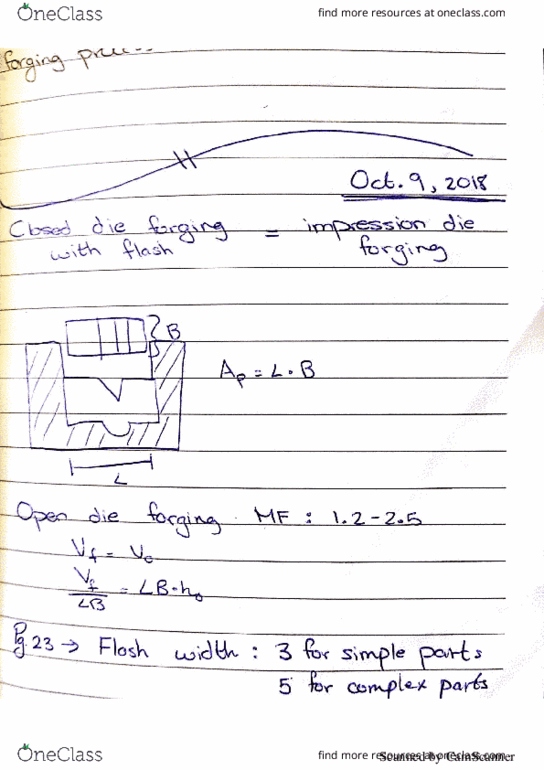 OneClass
find more resources at oneclass.com
forging
Oct. 9, 2018
Closed die forging = impression die
with flash
forging
B
Ap = L · B
L
Open die forging MF : 1.2-2.5
Vf = Vo
Vf/LB = LB·ho
Pg.23 → Flash width : 3 for simple parts
5 for complex parts
OneClass
find more resources at oneclass.com
Scanned by CamScanner